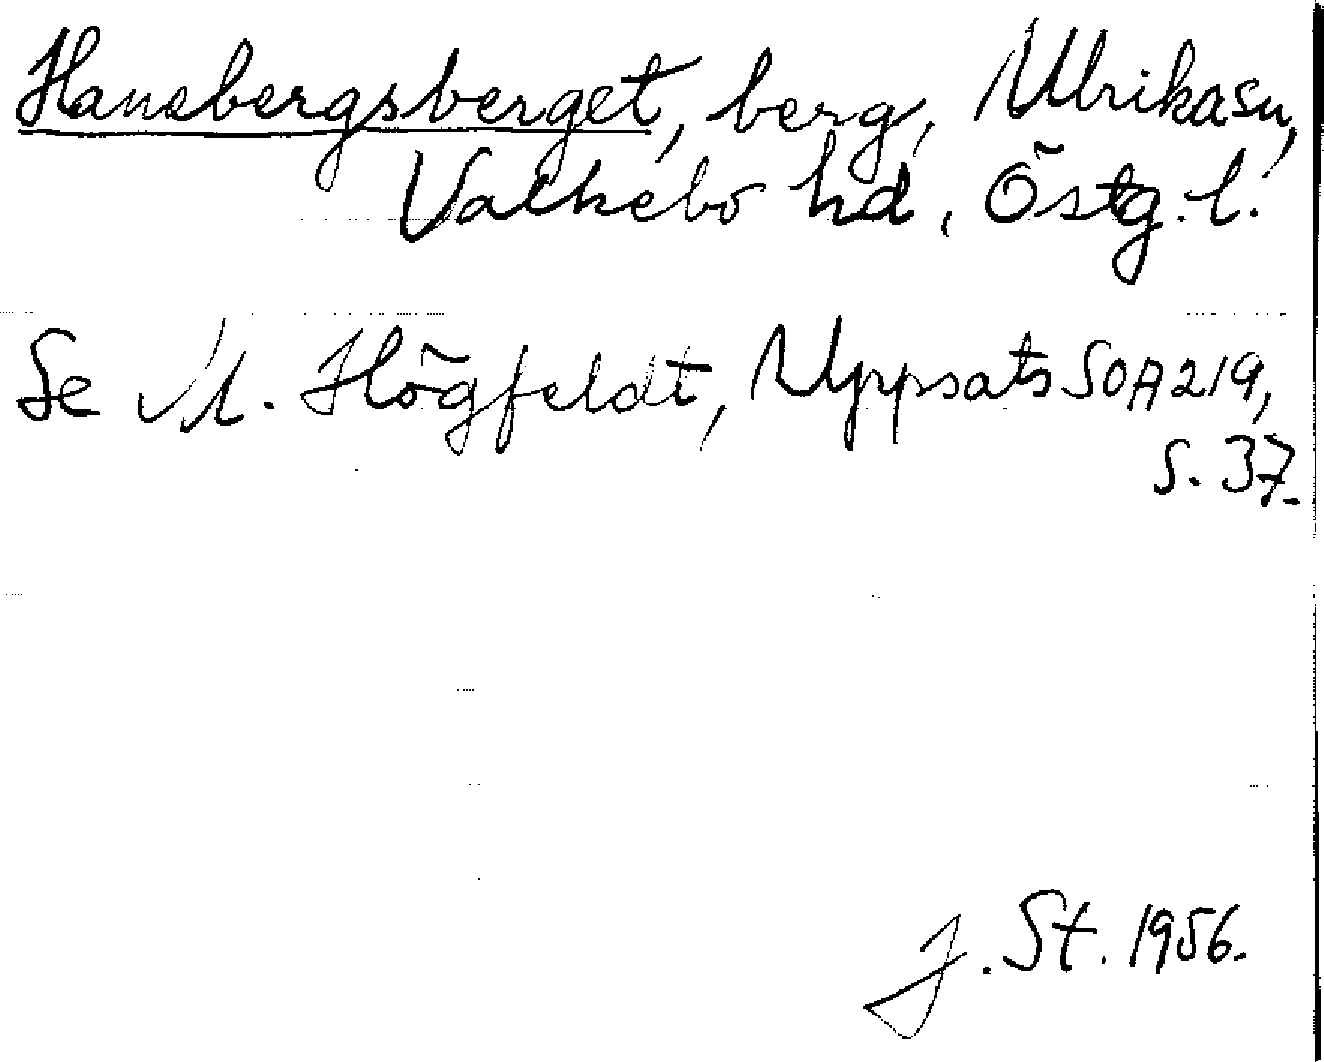 Hanebergsberget, berg, Ulrika sn,
Valkebo hd, Östg. l.
Se M. Högfeldt, Uppsats SOA 219,
s. 37.
J. St. 1956.